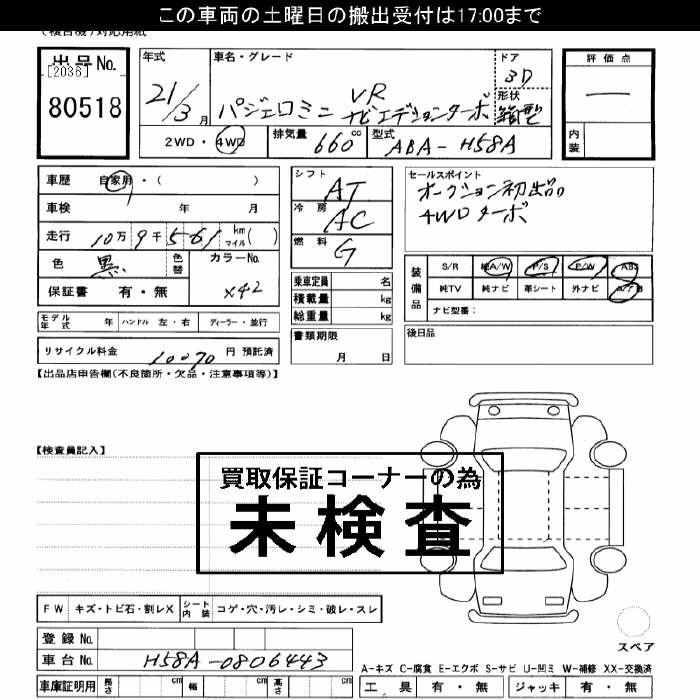 この車両の土曜日の搬出受付は17:00まで
出品No.
[2036]
80518
年式
21/3月
車名・グレード
パジェロミニ VR ナビエディションターボ
ドア
3D
形状
箱型
評価点
内装
2WD・4WD
排気量 660cc
型式 ABA-H58A
車歴 自家用・( )
車検 年 月
走行 10万9千561 km マイル( )
色 黒
色替
カラーNo.
X42
保証書 有・無
シフト AT
冷房 AC
燃料 G
乗車定員 名
積載量 kg
総重量 kg
書類期限
月 日
セールスポイント
オークション初出品
4WDターボ
装備品
S/R 純A/W P/S P/W ABS
純TV 純ナビ 革シート 外ナビ A/B
ナビ型番:
後日品
モデル年式 年 ハンドル 左・右 ディーラー・並行
リサイクル料金 10070 円 預託済
【出品店申告欄(不良箇所・欠品・注意事項等)】
【検査員記入】
買取保証コーナーの為
未検査
FW キズ・トビ石・割レX シート内装 コゲ・穴・汚レ・シミ・破レ・スレ
登録No.
車台No. H58A-0806443
車庫証明用 長さ cm 幅 cm 高さ cm
スペア
A-キズ C-腐食 E-エクボ S-サビ U-凹ミ W-補修 XX-交換済
工具 有・無 ジャッキ 有・無